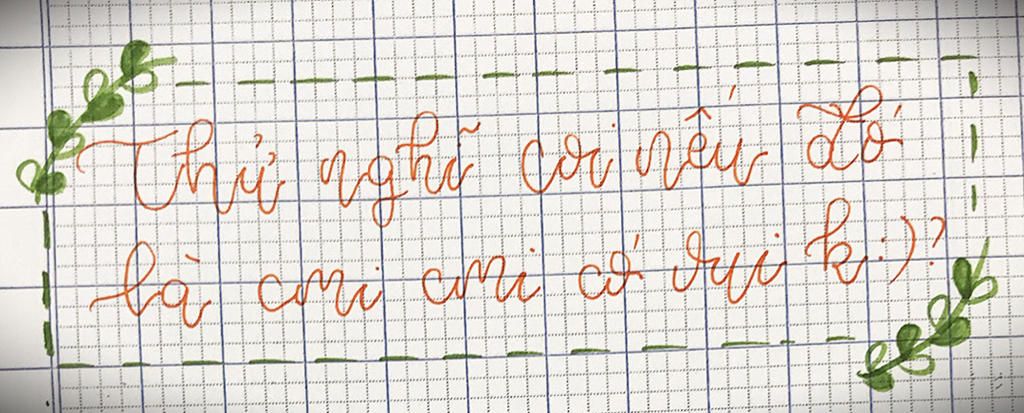 Thử nghĩ coi nếu đó
là cmi cmi có vui k :)?